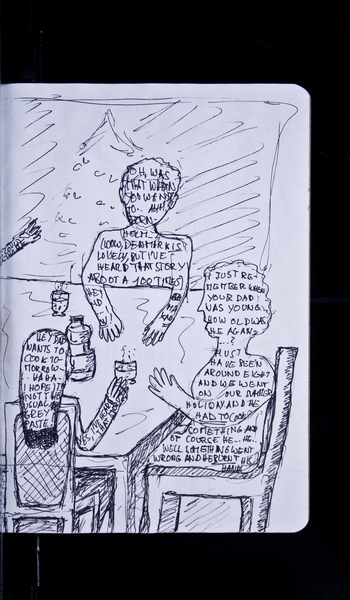 OH, WAS
THAT WHEN
YOU WENT
TO.. AHH
BORN-
HOLM..
WOW, DENMARK IS
LOVELY BUT I'VE
HEARD THAT STORY
ABOUT A 100 TIMES
HEY
I JUST RE-
MEMBER WHEN
YOUR DAD
WAS YOUNG..
HOW OLD WAS
HE AGAIN?
...?
MUST
HAVE BEEN
AROUND EIGHT
AND WE WENT
ON OUR SUMMER
HOLIDAY AND HE
HAD TO COOK
SOMETHING AND
OF COURSE HE.. HE..
WELL SOMETHING WENT
WRONG AND HE BURNT HIS
HAND
HEY DAD
WANTS TO
COOK TO-
MORROW-
HAHA-
I HOPE IT'S
NOT THE
USUAL
GREY
PASTE
YES,